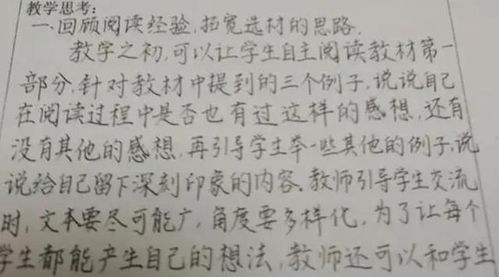 教学思考:
一、回顾阅读经验,拓宽选材的思路.
教学之初,可以让学生自主阅读教材第一
部分,针对教材中提到的三个例子,说说自己
在阅读过程中是否也有过这样的感想,还有
没有其他的感想,再引导学生举一些其他的例子,说
说给自己留下深刻印象的内容.教师引导学生交流
时,文本要尽可能广,角度要多样化,为了让每个
学生都能产生自己的想法,教师还可以和学生